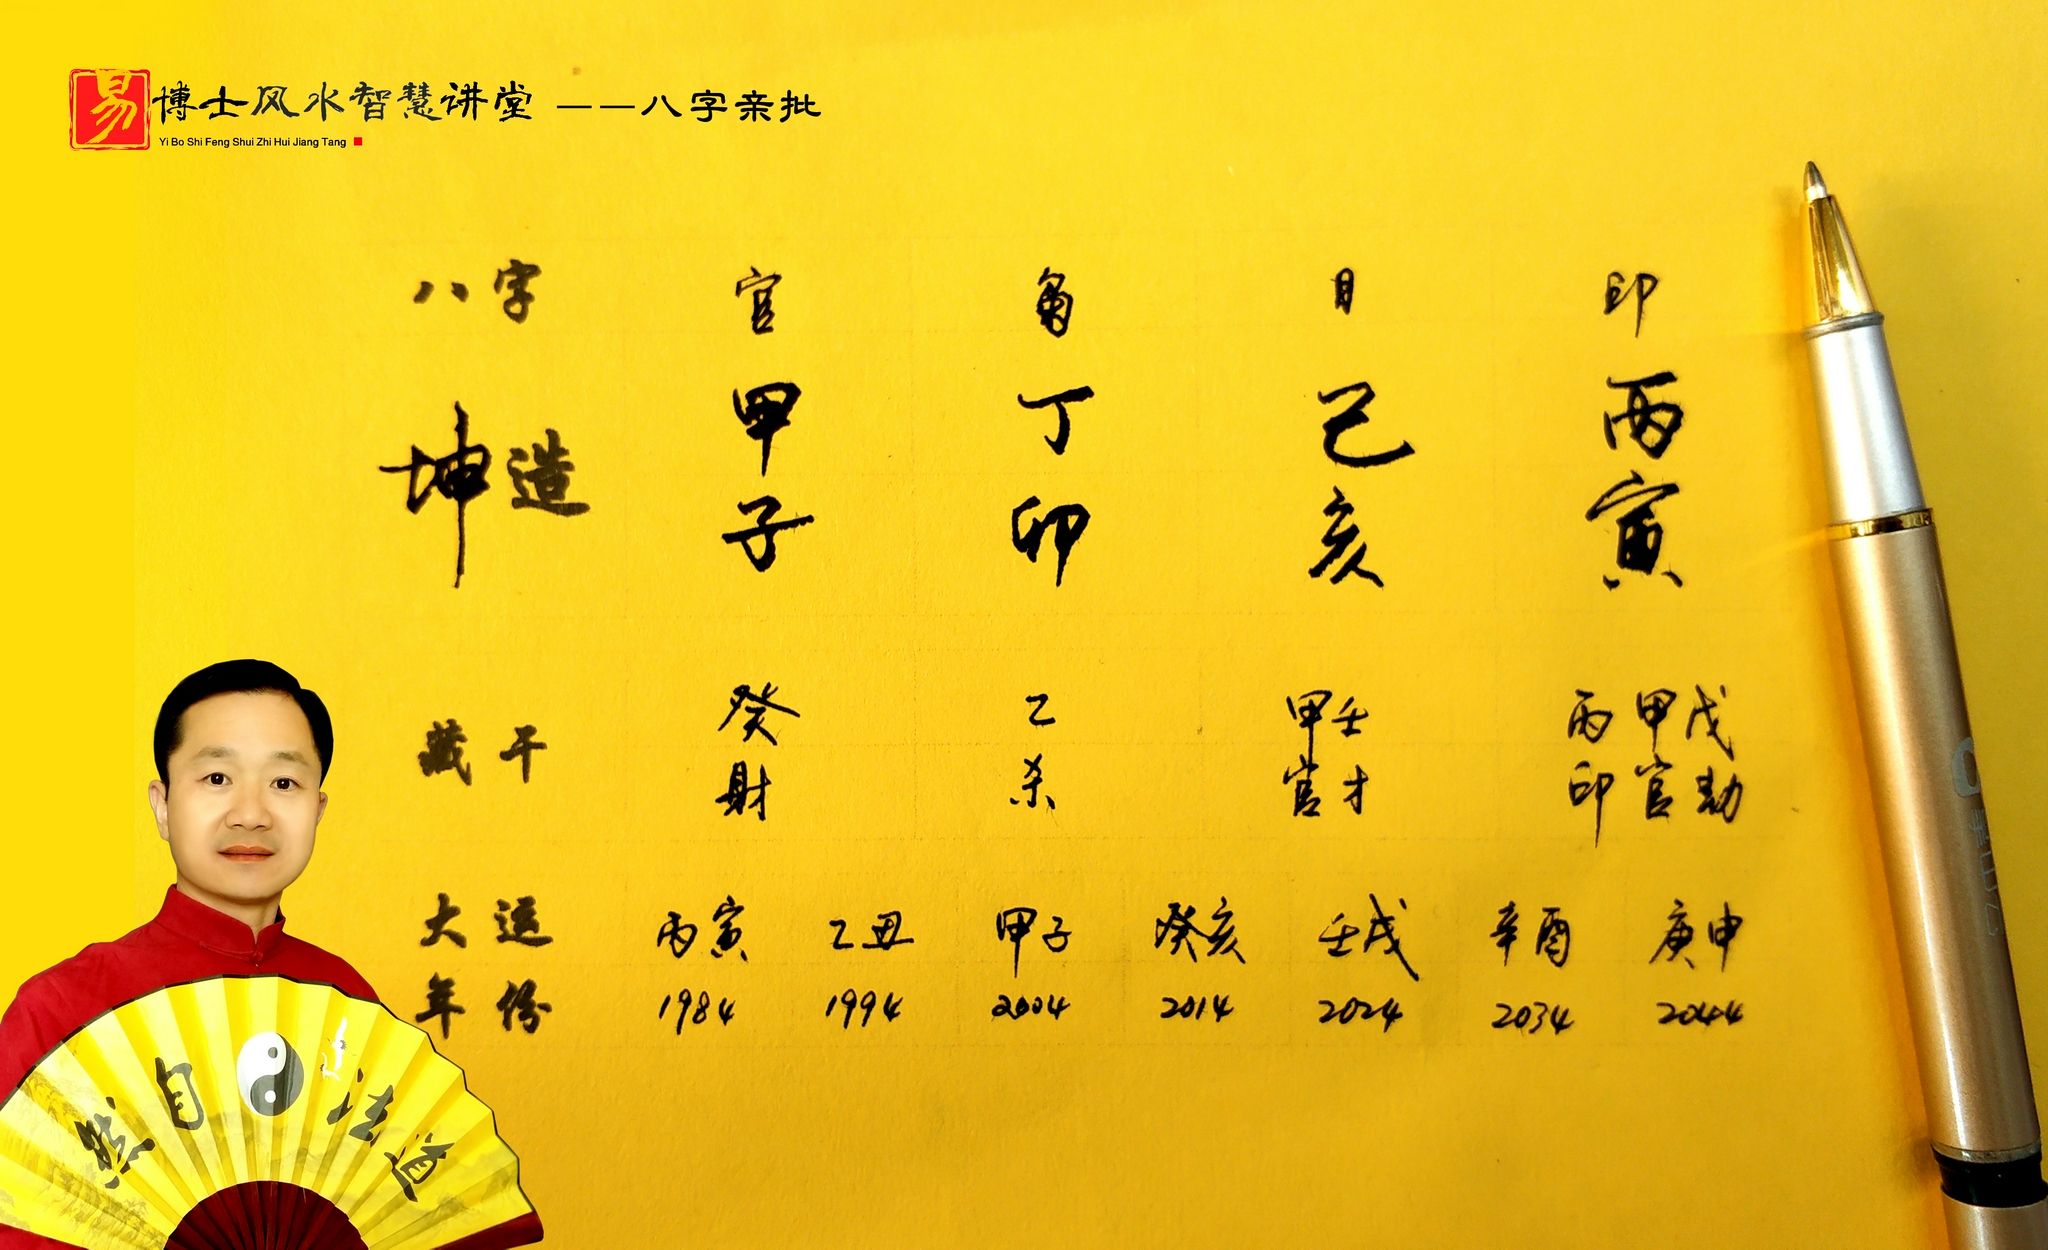 易博士风水智慧讲堂 ——八字亲批
Yi Bo Shi Feng Shui Zhi Hui Jiang Tang
八字 官 枭 日 印
坤造 甲 丁 己 丙
子 卯 亥 寅
藏干 癸 乙 甲壬 丙甲戊
财 杀 官才 印官劫
大运 丙寅 乙丑 甲子 癸亥 壬戌 辛酉 庚申
年份 1984 1994 2004 2014 2024 2034 2044
然自法道